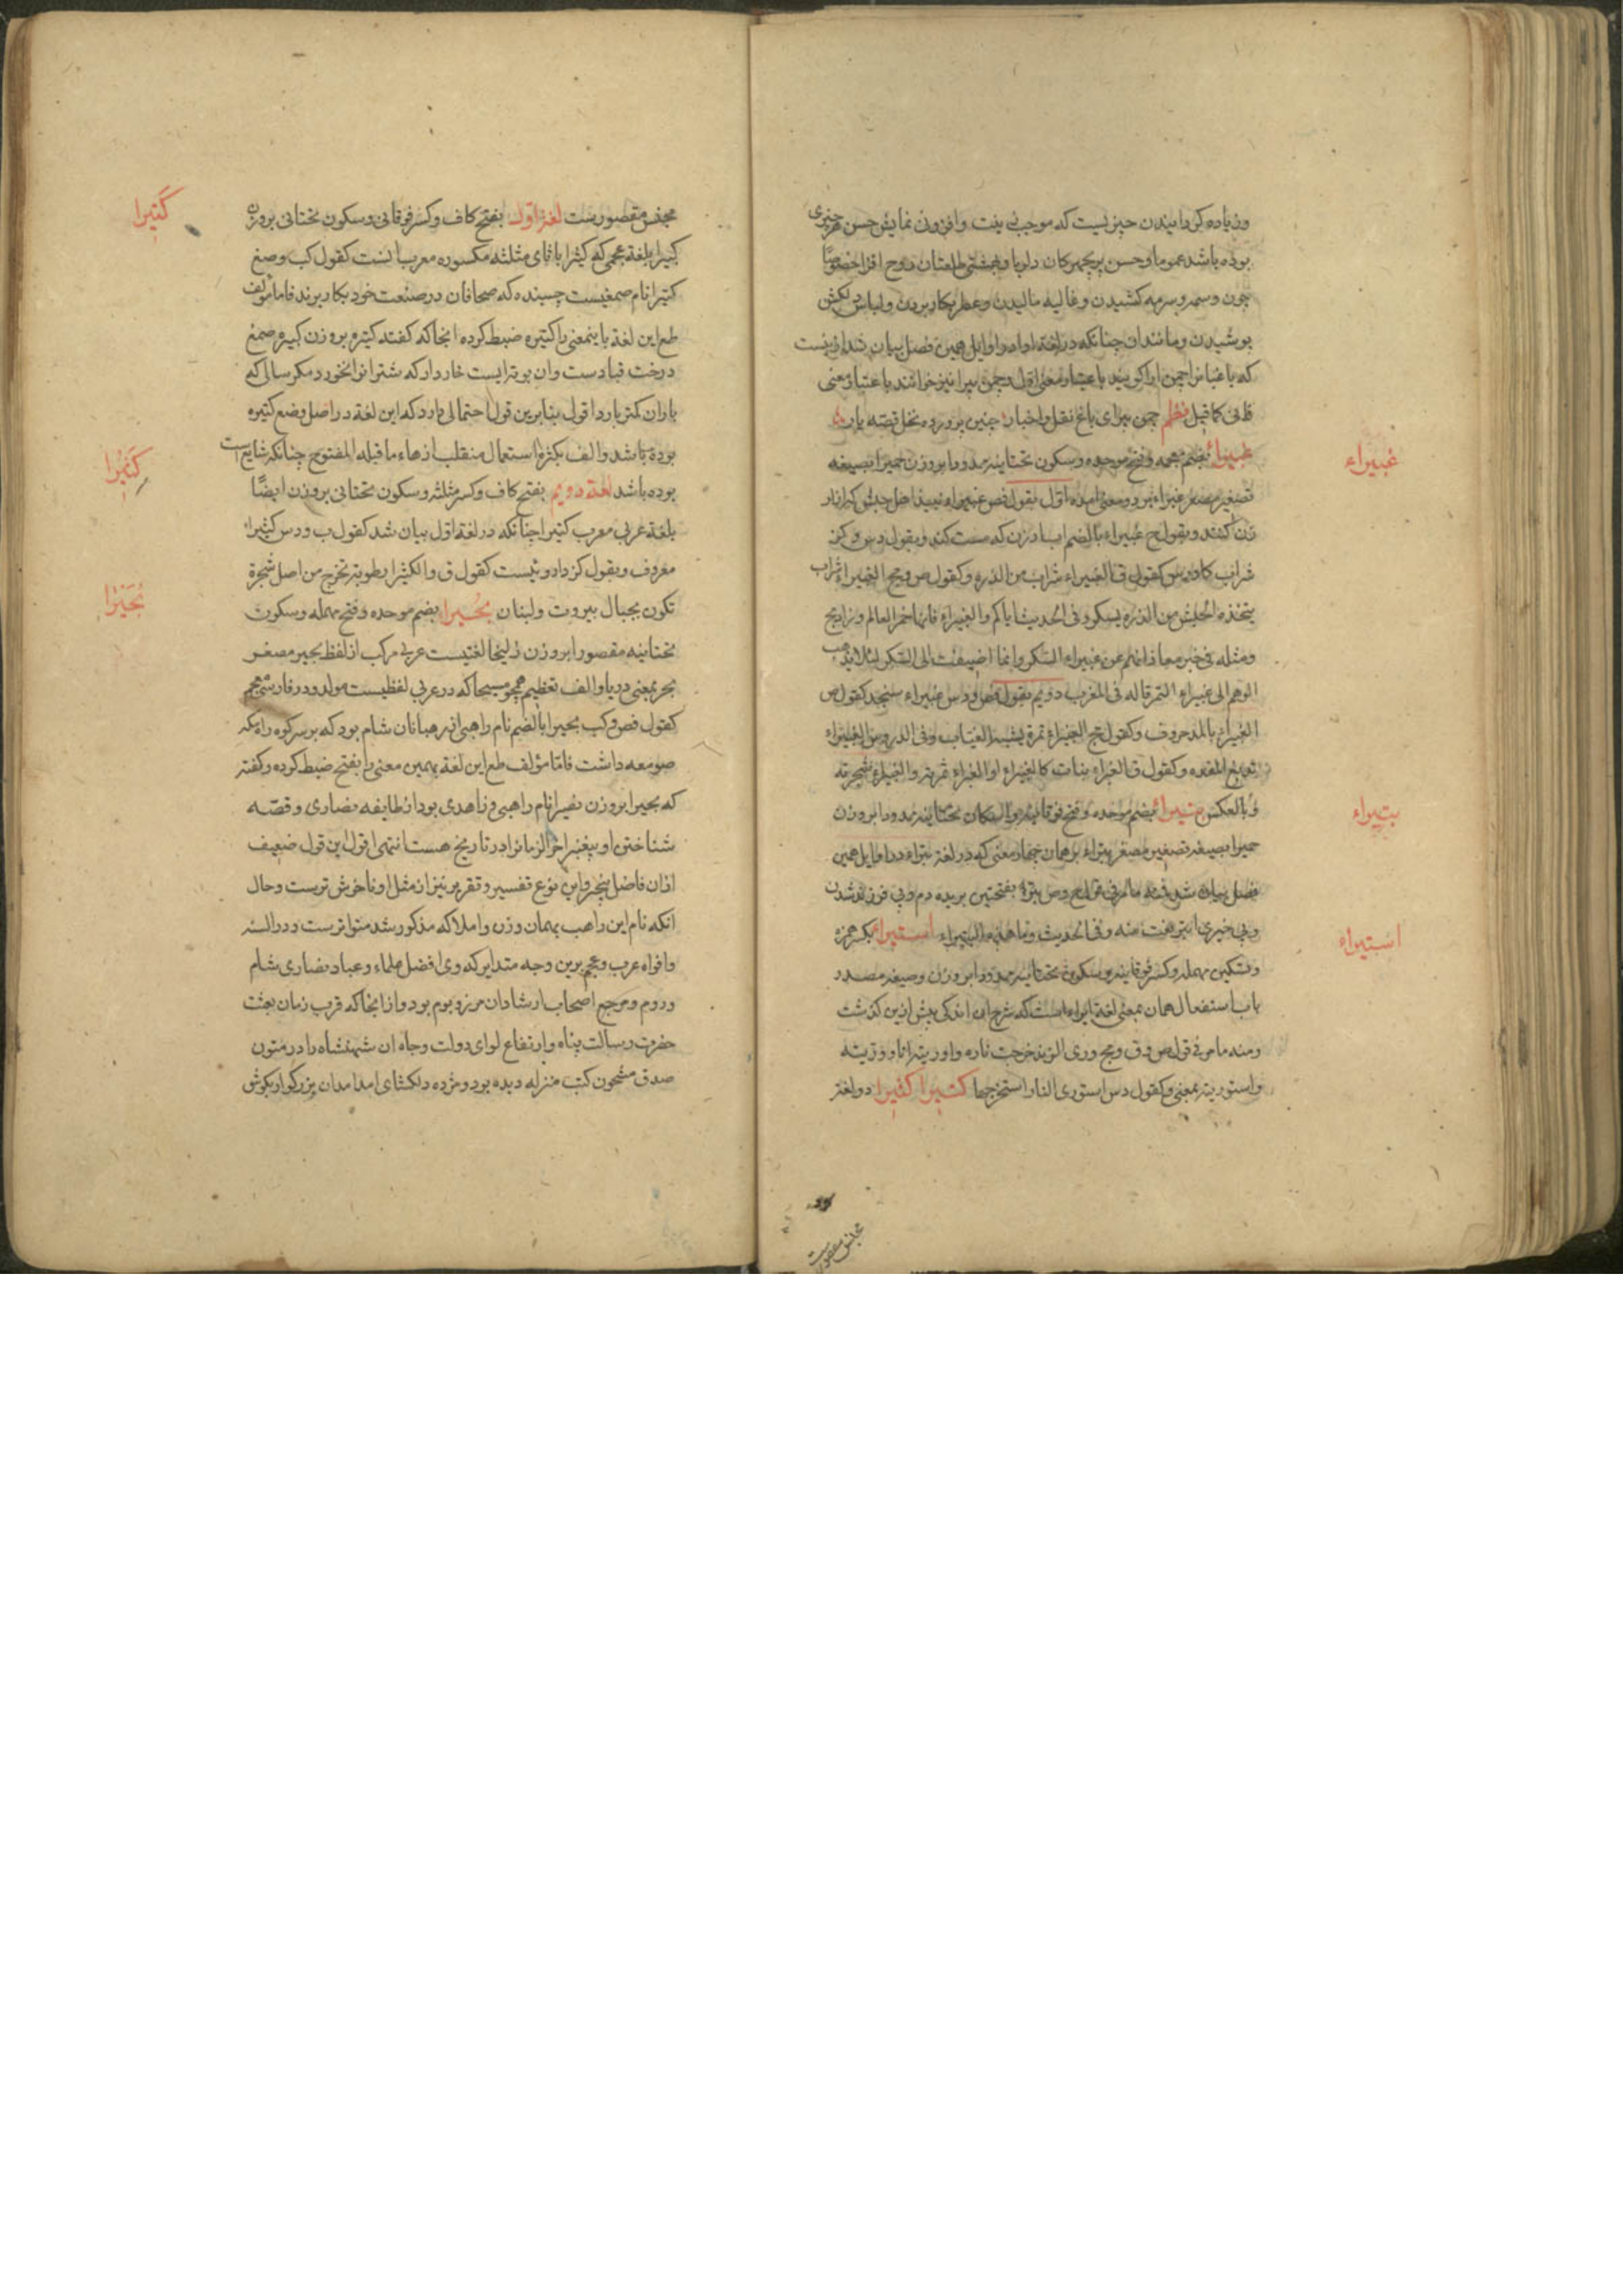 وزیاده کردانیدن چیزیست که موجب زینت وافزونی نمایش حسن هر چیزی
بوده باشد عموما وحسن پریچهرکان دلربا وبهشتی طلعتان روح افزا خصوصًا
چون وسمه وسرمه کشیدن وغالیه مالیدن وعطر بکار بردن ولباس دلکش
پوشیدن ومانند ان چنانکه در لغة اوایل همین فصل بیان شد ازینست
که باغبانرا چمن ارا کویند باعتبار معنی اول وچمن پیرا نیز خوانند باعتبار معنی
ثانی کما قیل نظم چمن پیرای باغ نقل واخبار چنین پرورده نخل قصه بار
غبیراء بضم معجمه وفتح موحده وسکون تحتانیه ممدودا بروزن حمیرا بصیغه
تصغیر مصغر غبراء بر دو معنی امده اول بقول فص غبیراء نبیذ اهل حبش که از ار
زن کنند وبقول ح غبیراء بالضم اب ارزن که مست کند وبقول دس وکنز
شراب کاورس کقول ق الغبیراء شراب من الذرة وکقول ص ومح الغبیراء شراب
یتخذه الحبش من الذرة یسکر وفی الحدیث ایاکم والغبیراء فانها خمر العالم وزاد مج
ومثله فی خبر معاذ انهم عن غبیراء السکر وانما اضیفت الی السکر لئلا یذهب
الوهم الی غبیراء التمر قاله فی المغرب دویم بقول فص ودس غبیراء سنجد کقول ص
الغبیراء بالمد معروف وکقول مج الغبیراء ثمرة یشبه العناب وفی الدروس الغبیراء
تدبغ المعده وکقول ق الغبراء نبات کالغبیراء او الغبراء ثمرته والغبیراء شجرته
وبالعکس بتیراء بضم موحده وفتح فوقانیه واسکان تحتانیه ممدودا بروزن
حمیرا بصیغه تصغیر مصغر بتراء بر همان چهار معنی که در لغة بتراء در اوایل همین
فصل بیان شد فمنه ما مر فی قول ح وص بترا بفتحتین بریده دم وبی فرزند شدن
وبی خیری ابتر نعت منه وفی الحدیث وما هذه البتیراء استیراء بکسر همزه
وتسکین مهمله وکسر فوقانیه وسکون تحتانیه ممدودا بروزن وصیغه مصدر
باب استفعال همان بمعنی لغة ایراء است که شرح ان اندکی پیش ازین کذشت
ومنه ما مر فی قول ص وق ومج وری الزند خرجت ناره واوریته انا ووریته
واستوریته بمعنی وکقول دس استوری النار استخرجها کتیرا کثیرا دو لغة
مجلس مقصورست
غبیراء
بتیراء
استیراء
مجنس مقصورست لغة اول بفتح کاف وکسر فوقانی وسکون تحتانی بروزن
کبیرا بلغة عجمی که کثیرا با ثای مثلثه مکسوره معرب انست کقول کب وصغ
کتیرا نام صمغیست چسبنده که صحافان در صنعت خود بکار برند فاما مولف
طع این لغة باینمعنی را کتیره ضبط کرده انجا که کفته کتیره بروزن کبیره صمغ
درخت قتادست وان بوته ایست خاردار که شتر انرا نخورد مکر سالی که
باران کمتر بارد اقول بنابرین قول احتمالی دارد که این لغة در اصل وضع کتیره
بوده باشد والف بکثرة استعمال منقلب از هاء ما قبله المفتوح چنانکه شایع است
بوده باشد لغة دویم بفتح کاف وکسر مثلثه وسکون تحتانی بروزن ایضًا
بلغة عربی معرب کتیرا چنانکه در لغة اول بیان شد کقول ب ودس کثیرا
معروف وبقول کز داروئیست کقول ق والکثیرا رطوبة تخرج من اصل شجرة
تکون بجبال بیروت ولبنان بحیرا بضم موحده وفتح مهمله وسکون
تحتانیه مقصورا بروزن زلیخا لغتیست عربی مرکب از لفظ بحیر مصغر
بحر بمعنی دریا والف تعظیم همچو مسیحا که در عربی لفظیست مولد ودر فارسی عجم
کقول فص وکب بحیرا بالضم نام راهبی از رهبانان شام بود که بر سر کوه راه مکه
صومعه داشت فاما مؤلف طع این لغة بهمین معنی را بفتح ضبط کرده وکفته
که بحیرا بروزن نصیرا نام راهبی وزاهدی بود از طایفه نصاری وقصه
شناختن او پیغمبر اخر الزمانرا در تاریخ هست انتهی اقول این قول ضعیف
ازان فاضل واین نوع تفسیر وتقریر نیز از مثل او ناخوش ترست وحال
انکه نام این راهب بهمان وزن واملا که مذکور شد متواترست ودر السنه
وافواه عرب وعجم برین وجه متدایر که وی افضل علماء وعباد نصاری شام
وروم ومرجع اصحاب ارشادان مرز وبوم بود واز انجا که قرب زمان بعثت
حضرت رسالت پناه وارتفاع لوای دولت وجاه ان شهنشاه را در متون
صدق مشحون کتب منزله دیده بود ومژده دلکشای امدامدان بزرکوار بکوش
کتیرا
کثیرا
بحیرا